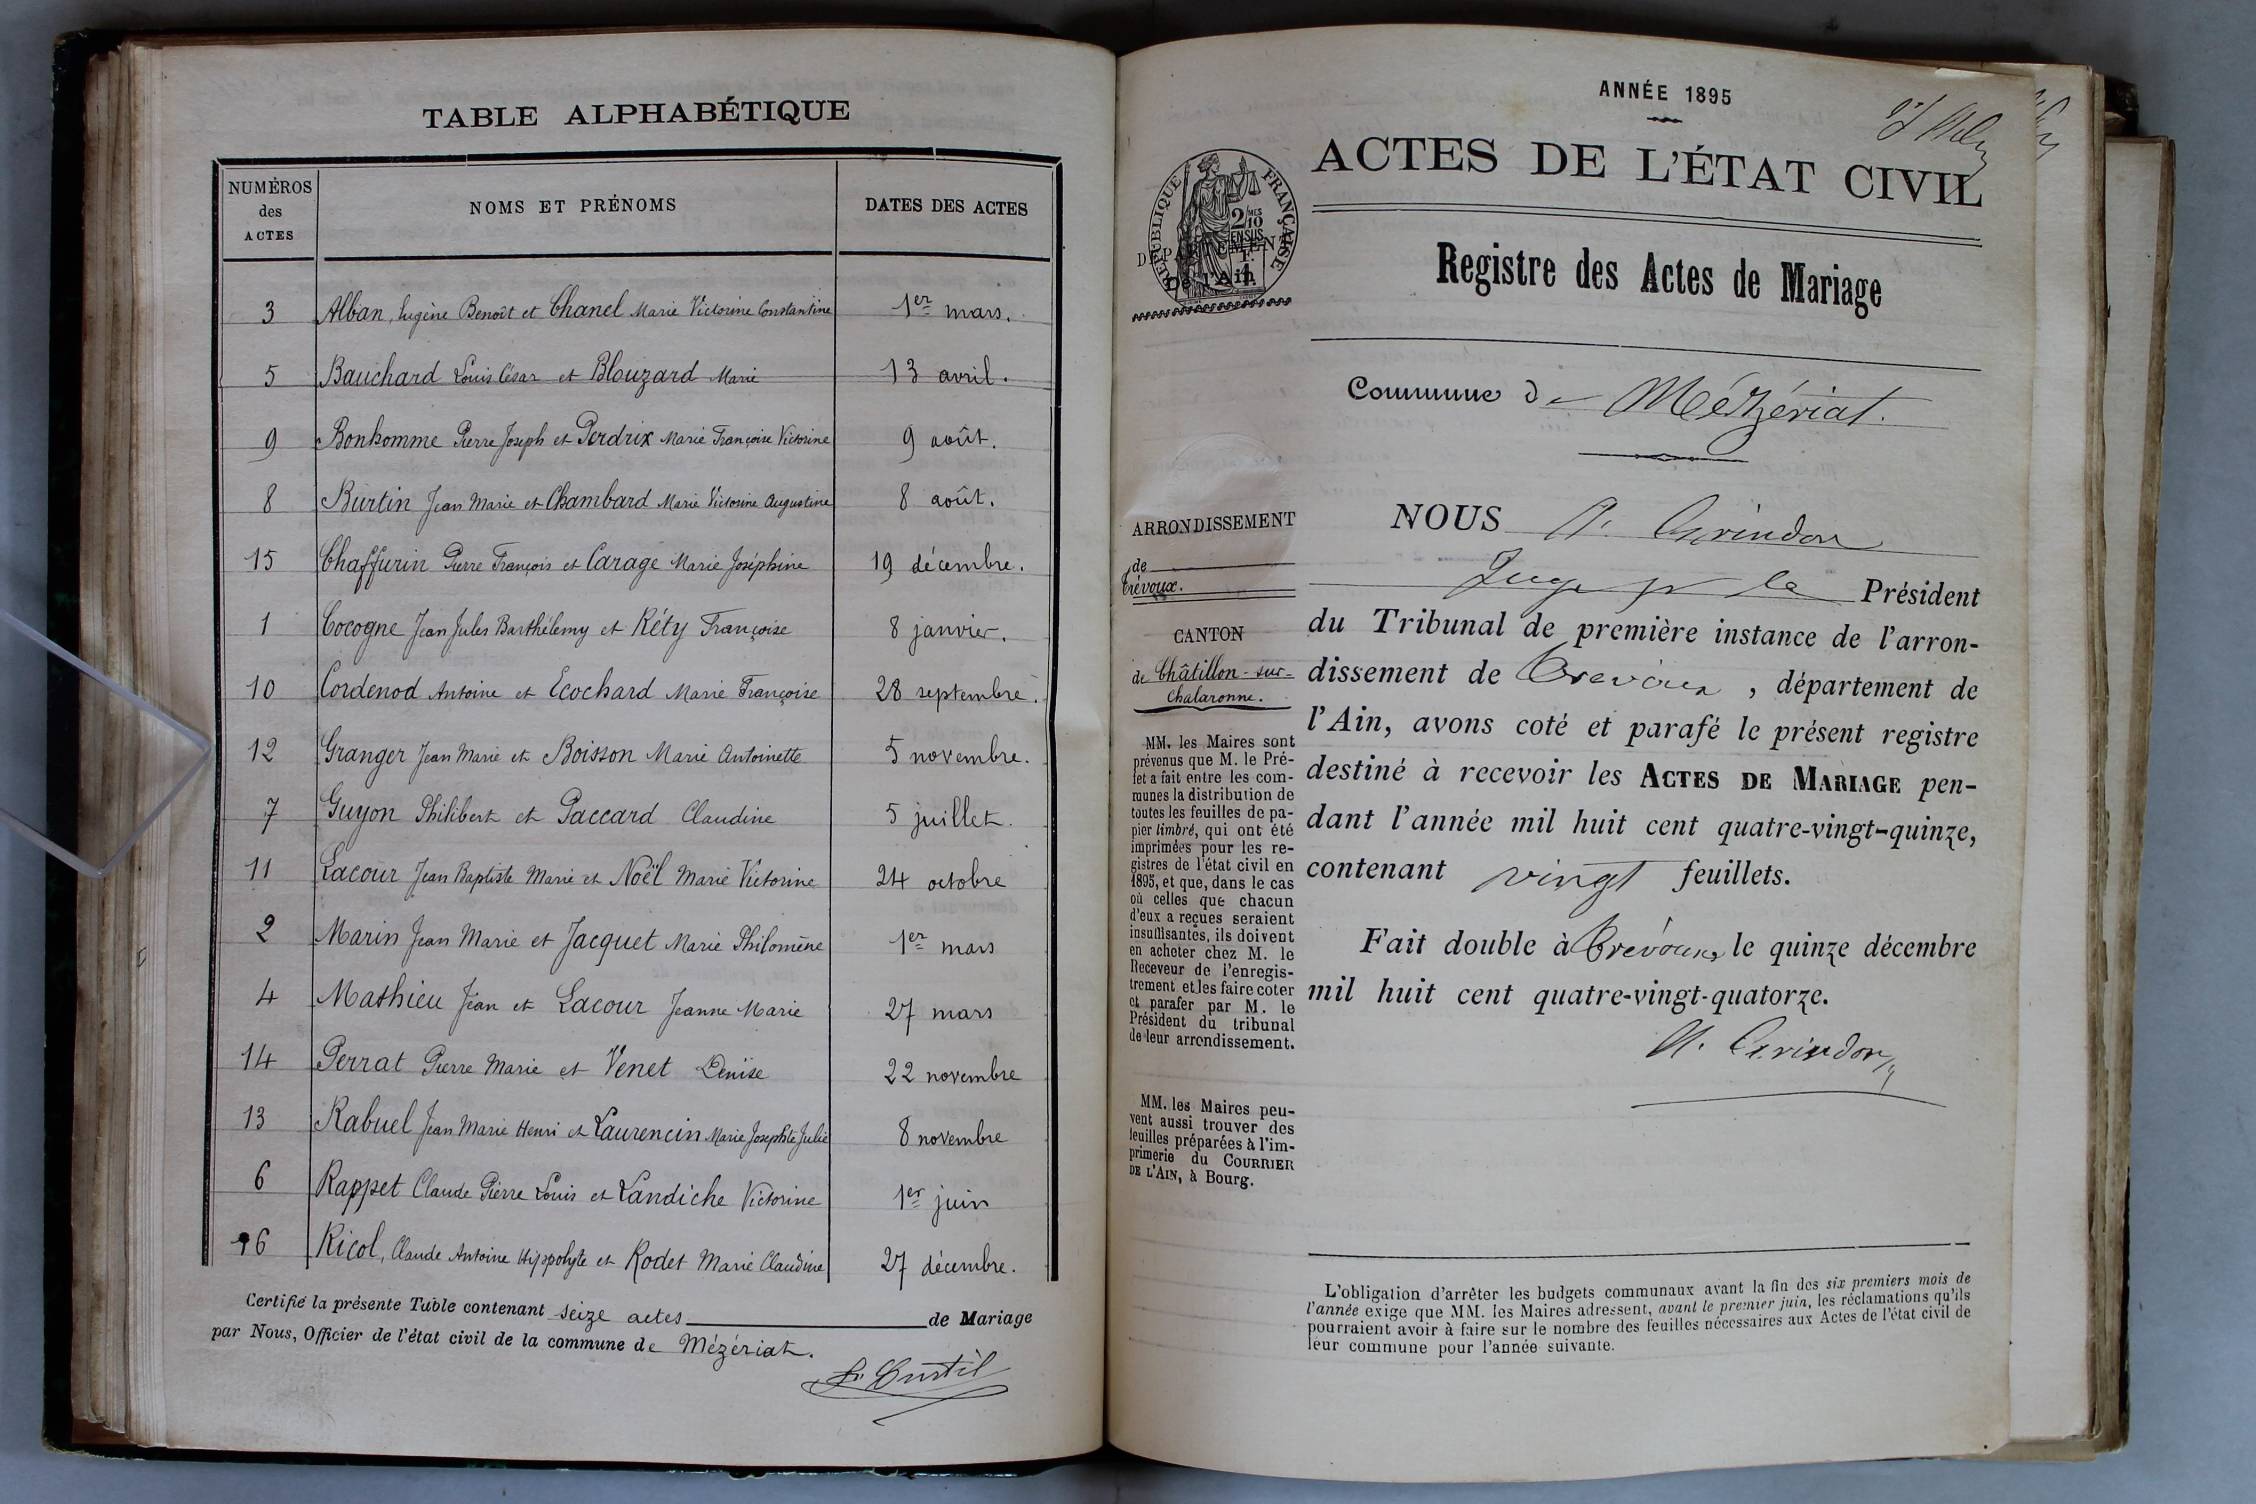 TABLE ALPHABÉTIQUE
NUMÉROS des ACTES | NOMS ET PRÉNOMS | DATES DES ACTES
3 Alban, Eugène Benoît et Chanel Marie Victorine Constantine 1er mars.
5 Bauchard Louis César et Blouzard Marie 13 avril.
9 Bonhomme Pierre Joseph et Perdrix Marie Françoise Victorine 9 août.
8 Burtin Jean Marie et Chambard Marie Victorine Augustine 8 août.
15 Chaffurin Pierre François et Carage Marie Joséphine 19 décembre.
1 Cocogne Jean Jules Barthélemy et Réty Françoise 8 janvier.
10 Cordenod Antoine et Ecochard Marie Françoise 28 septembre.
12 Granger Jean Marie et Boisson Marie Antoinette 5 novembre.
7 Guyon Philibert et Paccard Claudine 5 juillet.
11 Lacour Jean Baptiste Marie et Noël Marie Victorine 24 octobre
2 Marin Jean Marie et Jacquet Marie Philomène 1er mars
4 Mathieu Jean et Lacour Jeanne Marie 27 mars
14 Perrat Pierre Marie et Venet Denise 22 novembre
13 Rabuel Jean Marie Henri et Laurencin Marie Josephte Julie 8 novembre
6 Rappet Claude Pierre Louis et Landiche Victorine 1er juin
16 Ricol, Claude Antoine Hippolyte et Rodet Marie Claudine 27 décembre.
Certifié la présente Table contenant seize actes de Mariage
par Nous, Officier de l'état civil de la commune de Mézériat.
ANNÉE 1895
ACTES DE L'ÉTAT CIVIL
RÉPUBLIQUE FRANÇAISE
2/10 MES
EN SUS
DÉPARTEMENT
De l'Ain
Registre des Actes de Mariage
Commune de Mézériat.
ARRONDISSEMENT
de
Trévoux.
CANTON
de Châtillon-sur-
Chalaronne.
MM. les Maires sont
prévenus que M. le Pré-
fet a fait entre les com-
munes la distribution de
toutes les feuilles de pa-
pier timbré, qui ont été
imprimées pour les re-
gistres de l'état civil en
1895, et que, dans le cas
où celles que chacun
d'eux a reçues seraient
insuffisantes, ils doivent
en acheter chez M. le
Receveur de l'enregis-
trement et les faire coter
et parafer par M. le
Président du tribunal
de leur arrondissement.
MM. les Maires peu-
vent aussi trouver des
feuilles préparées à l'im-
primerie du COURRIER
DE L'AIN, à Bourg.
NOUS A. Grindon
Juge pr le Président
du Tribunal de première instance de l'arron-
dissement de Trévoux, département de
l'Ain, avons coté et parafé le présent registre
destiné à recevoir les ACTES DE MARIAGE pen-
dant l'année mil huit cent quatre-vingt-quinze,
contenant vingt feuillets.
Fait double à Trévoux, le quinze décembre
mil huit cent quatre-vingt-quatorze.
A. Grindon
L'obligation d'arrêter les budgets communaux avant la fin des six premiers mois de
l'année exige que MM. les Maires adressent, avant le premier juin, les réclamations qu'ils
pourraient avoir à faire sur le nombre des feuilles nécessaires aux Actes de l'état civil de
leur commune pour l'année suivante.